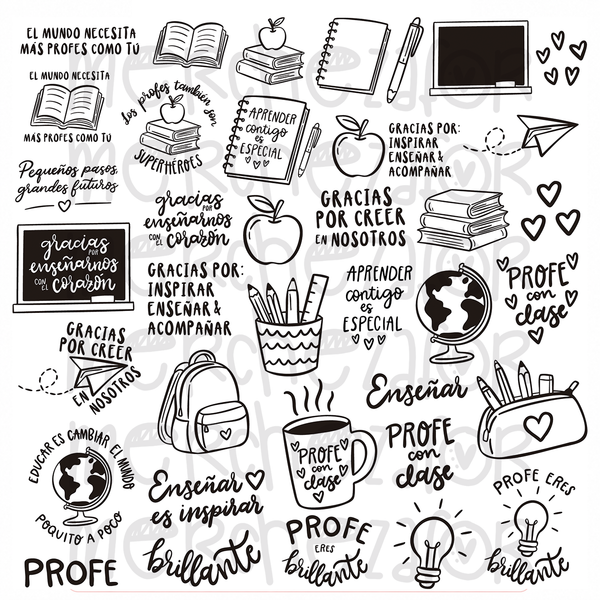 EL MUNDO NECESITA
MÁS PROFES COMO TÚ
EL MUNDO NECESITA
MÁS PROFES COMO TÚ
los profes también son
SUPERHÉROES
APRENDER
contigo
es
ESPECIAL
GRACIAS POR:
INSPIRAR
ENSEÑAR &
ACOMPAÑAR
Pequeños pasos,
grandes futuros
gracias
POR
enseñarnos
CON EL corazón
GRACIAS
POR CREER
EN NOSOTROS
gracias
POR
enseñarnos
CON EL corazón
GRACIAS POR:
INSPIRAR
ENSEÑAR &
ACOMPAÑAR
APRENDER
contigo
es
ESPECIAL
PROFE
con
clase
GRACIAS
POR CREER
EN NOSOTROS
Enseñar
PROFE
con
clase
PROFE
con
clase
EDUCAR ES CAMBIAR EL MUNDO
POQUITO A POCO
Enseñar
es inspirar
PROFE
ERES
brillante
PROFE ERES
brillante
PROFE
brillante
merchezalor